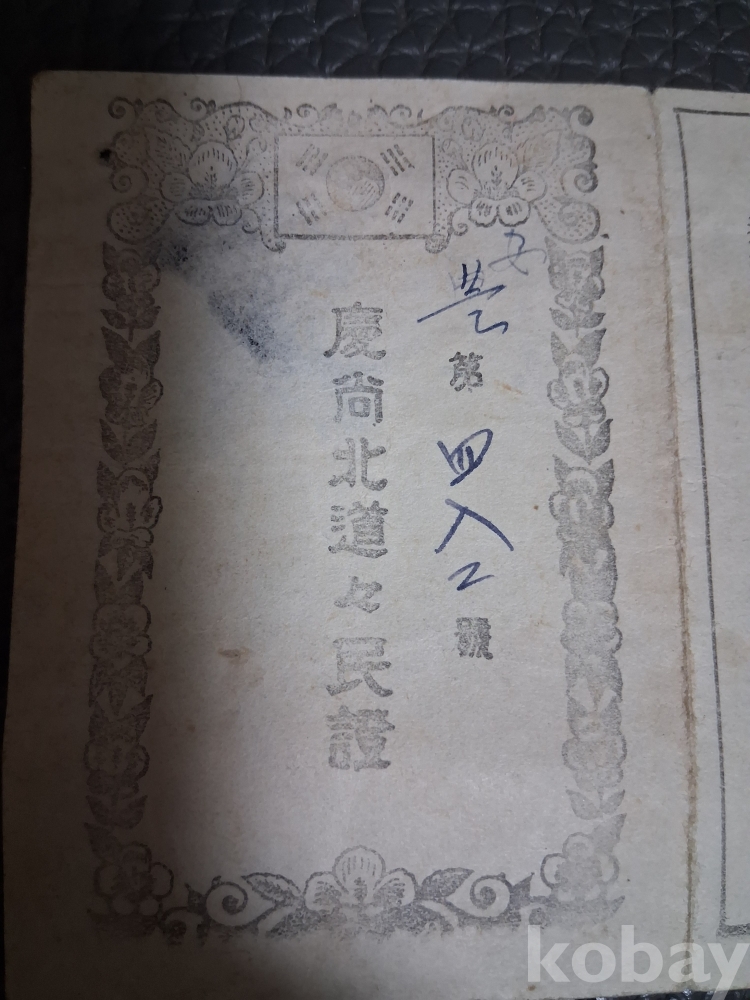 第四八二號
慶尚北道々民證
kobay